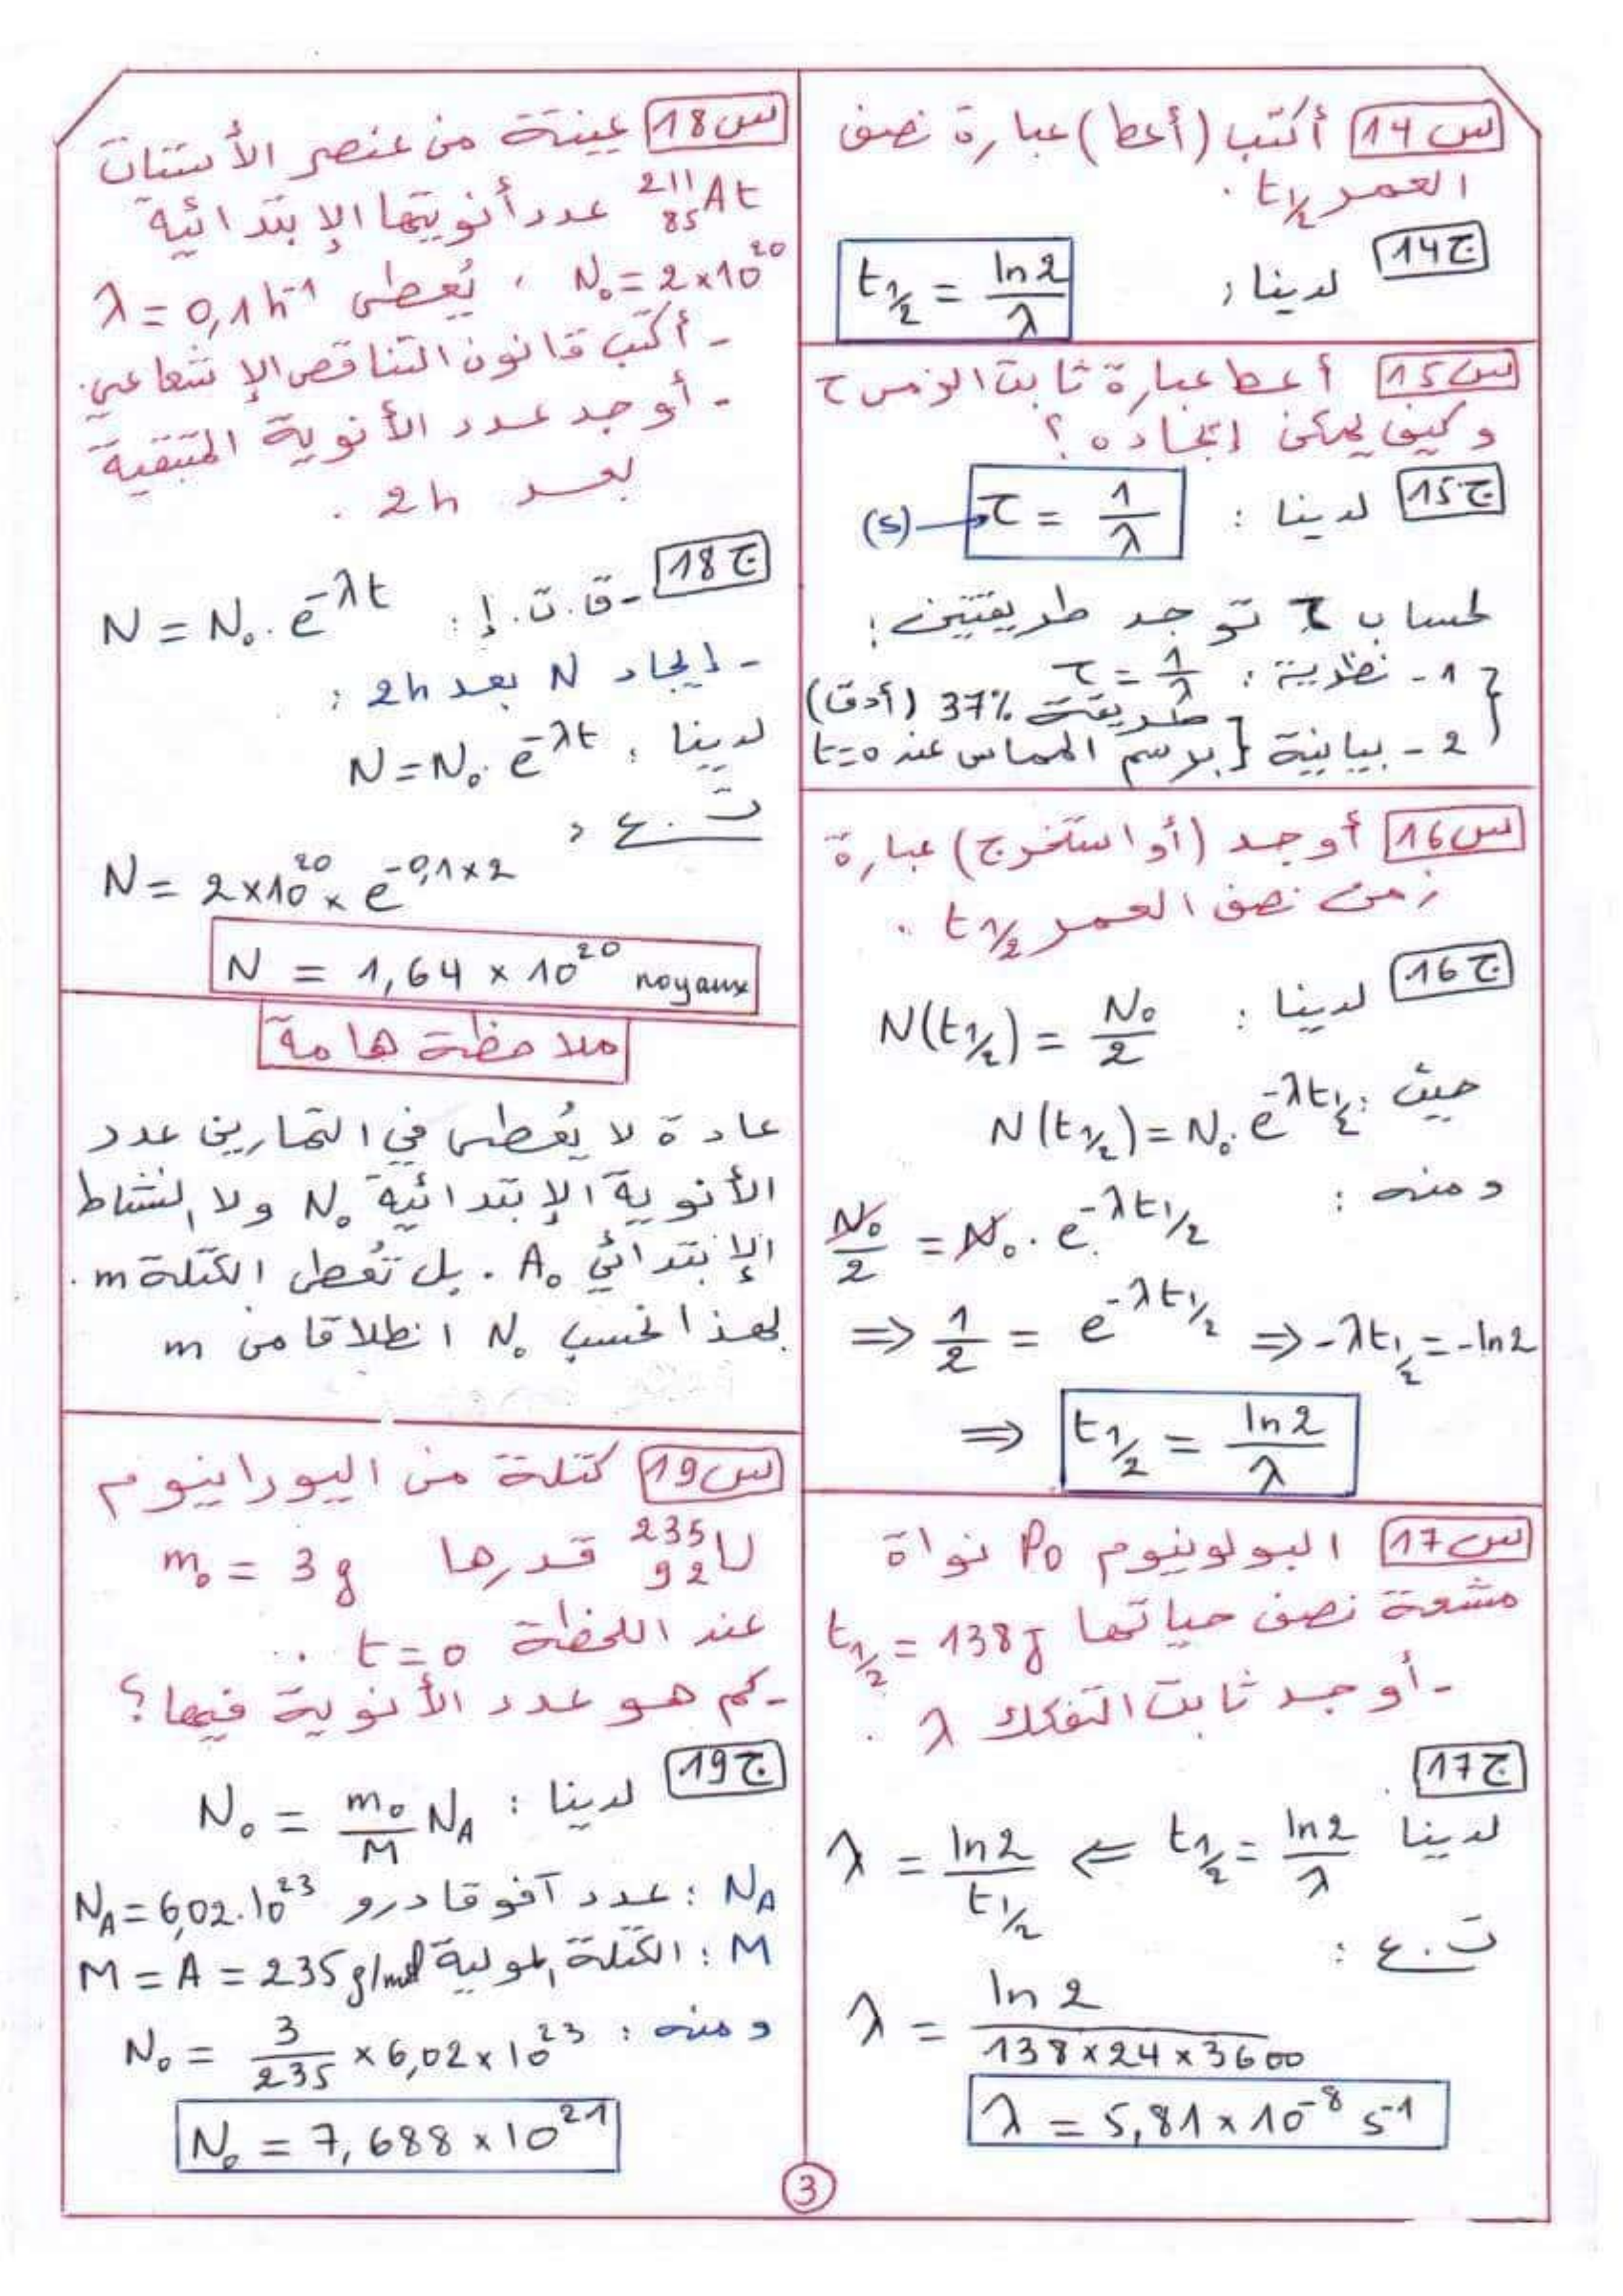 س14 أكتب (أعط) عبارة نصف
العمر t1/2 .
ج14 لدينا :
t1/2 = ln2/λ
س15 أعط عبارة ثابت الزمن τ
وكيف يمكن إيجاده ؟
ج15 لدينا : τ = 1/λ (s)
لحساب τ توجد طريقتين :
1- نظرية : τ = 1/λ
طريقة 37% (أدق)
2- بيانية { برسم المماس عند t=0
س16 أوجد (أو استخرج) عبارة
زمن نصف العمر t1/2 .
ج16 لدينا : N(t1/2) = N₀/2
حيث : N(t1/2) = N₀ . e^-λt1/2
ومنه :
N₀/2 = N₀ . e^-λt1/2
⇒ 1/2 = e^-λt1/2 ⇒ -λt1/2 = -ln2
⇒ t1/2 = ln2/λ
س17 البولونيوم Po نواة
مشعة نصف حياتها t1/2 = 138j
- أوجد ثابت التفكك λ .
ج17
لدينا t1/2 = ln2/λ ⇐ λ = ln2/t1/2
ت.ع :
λ = ln2/(138×24×3600)
λ = 5,81 × 10^-8 s^-1
س18 عينة من عنصر الأستنات
²¹¹₈₅At عدد أنويتها الإبتدائية
N₀ = 2×10^20 ، يُعطى λ = 0,1h^-1
- أكتب قانون التناقص الإشعاعي .
- أوجد عدد الأنوية المتبقية
بعد 2h .
ج18 - ق.ت.إ : N = N₀ . e^-λt
- إيجاد N بعد 2h :
لدينا : N = N₀ . e^-λt
ت.ع :
N = 2×10^20 × e^-0,1×2
N = 1,64 × 10^20 noyaux
ملاحظة هامة
عادة لا يُعطى في التمارين عدد
الأنوية الإبتدائية N₀ ولا النشاط
الإبتدائي A₀ . بل تُعطى الكتلة m .
لهذا نحسب N₀ انطلاقا من m
س19 كتلة من اليورانيوم
²³⁵₉₂U قدرها m₀ = 3g
عند اللحظة t = 0 .
- كم هو عدد الأنوية فيها ؟
ج19 لدينا : N₀ = m₀/M N_A
N_A : عدد آفوقادرو N_A = 6,02.10^23
M : الكتلة المولية M = A = 235 g/mol
ومنه : N₀ = 3/235 × 6,02 × 10^23
N₀ = 7,688 × 10^21
3